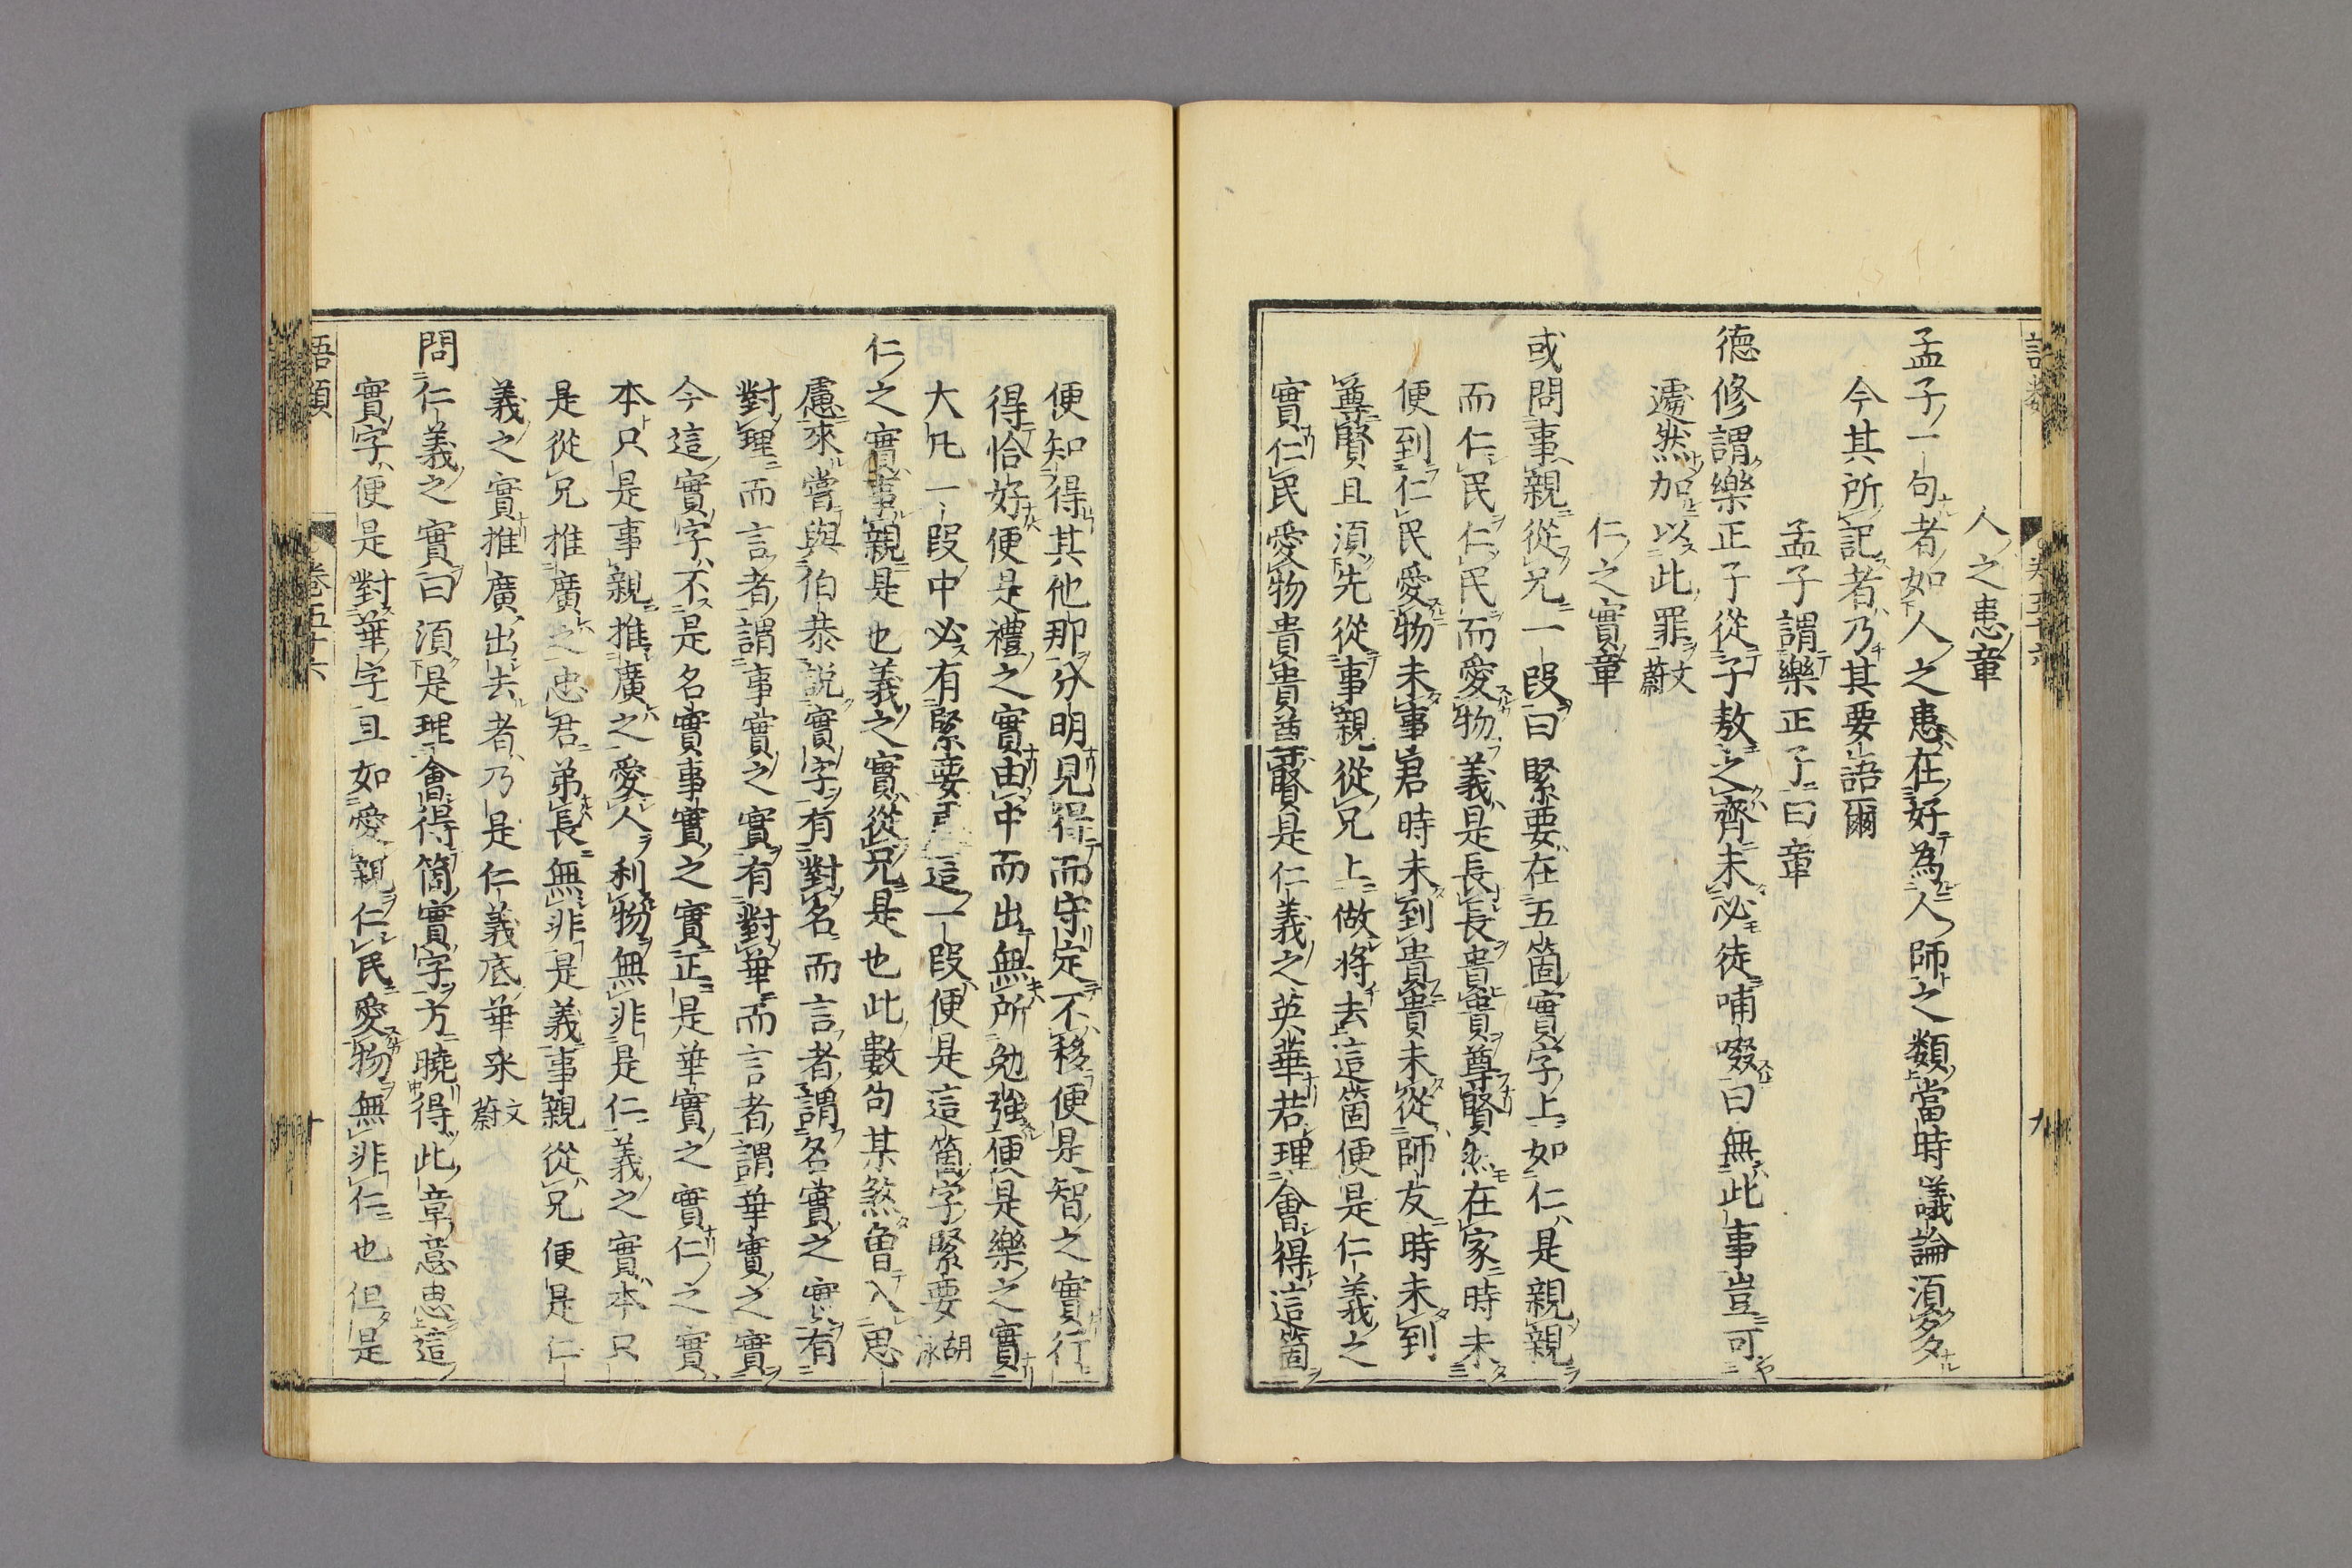 人之患章
孟子一句者如人之患在好為人師之類當時議論須多
今其所記者乃其要語爾
孟子謂樂正子曰章
德修謂樂正子從子敖之齊未必徒哺啜曰無此事豈可
遽然加以此罪文蔚
仁之實章
或問事親從兄一段曰緊要在五箇實字上如仁是親親
而仁民仁民而愛物義是長長貴貴尊賢然在家時未
便到仁民愛物未事君時未到貴貴未從師友時未到
尊賢且須先從事親從兄上做將去這箇便是仁義之
實仁民愛物貴貴尊賢是仁義之英華若理會得這箇
便知得其他那分明見得而守定不移便是智之實行
得恰好便是禮之實由中而出無所勉強便是樂之實
大凡一段中必有緊要這一段便是這箇字緊要胡泳
仁之實事親是也義之實從兄是也此數句某煞曾入思
慮來嘗與伯恭說實字有對名而言者謂名實之實有
對理而言者謂事實之實有對華而言者謂華實之實
今這實字不是名實事實之實正是華實之實仁之實
本只是事親推廣之愛人利物無非是仁義之實本只
是從兄推廣之忠君弟長無非是義事親從兄便是仁
義之實推廣出去者乃是仁義底華采文蔚
問仁義之實曰須是理會得箇實字方曉得此章意思這
實字便是對華字且如愛親仁民愛物無非仁也但是
語類
卷五十六
十
九